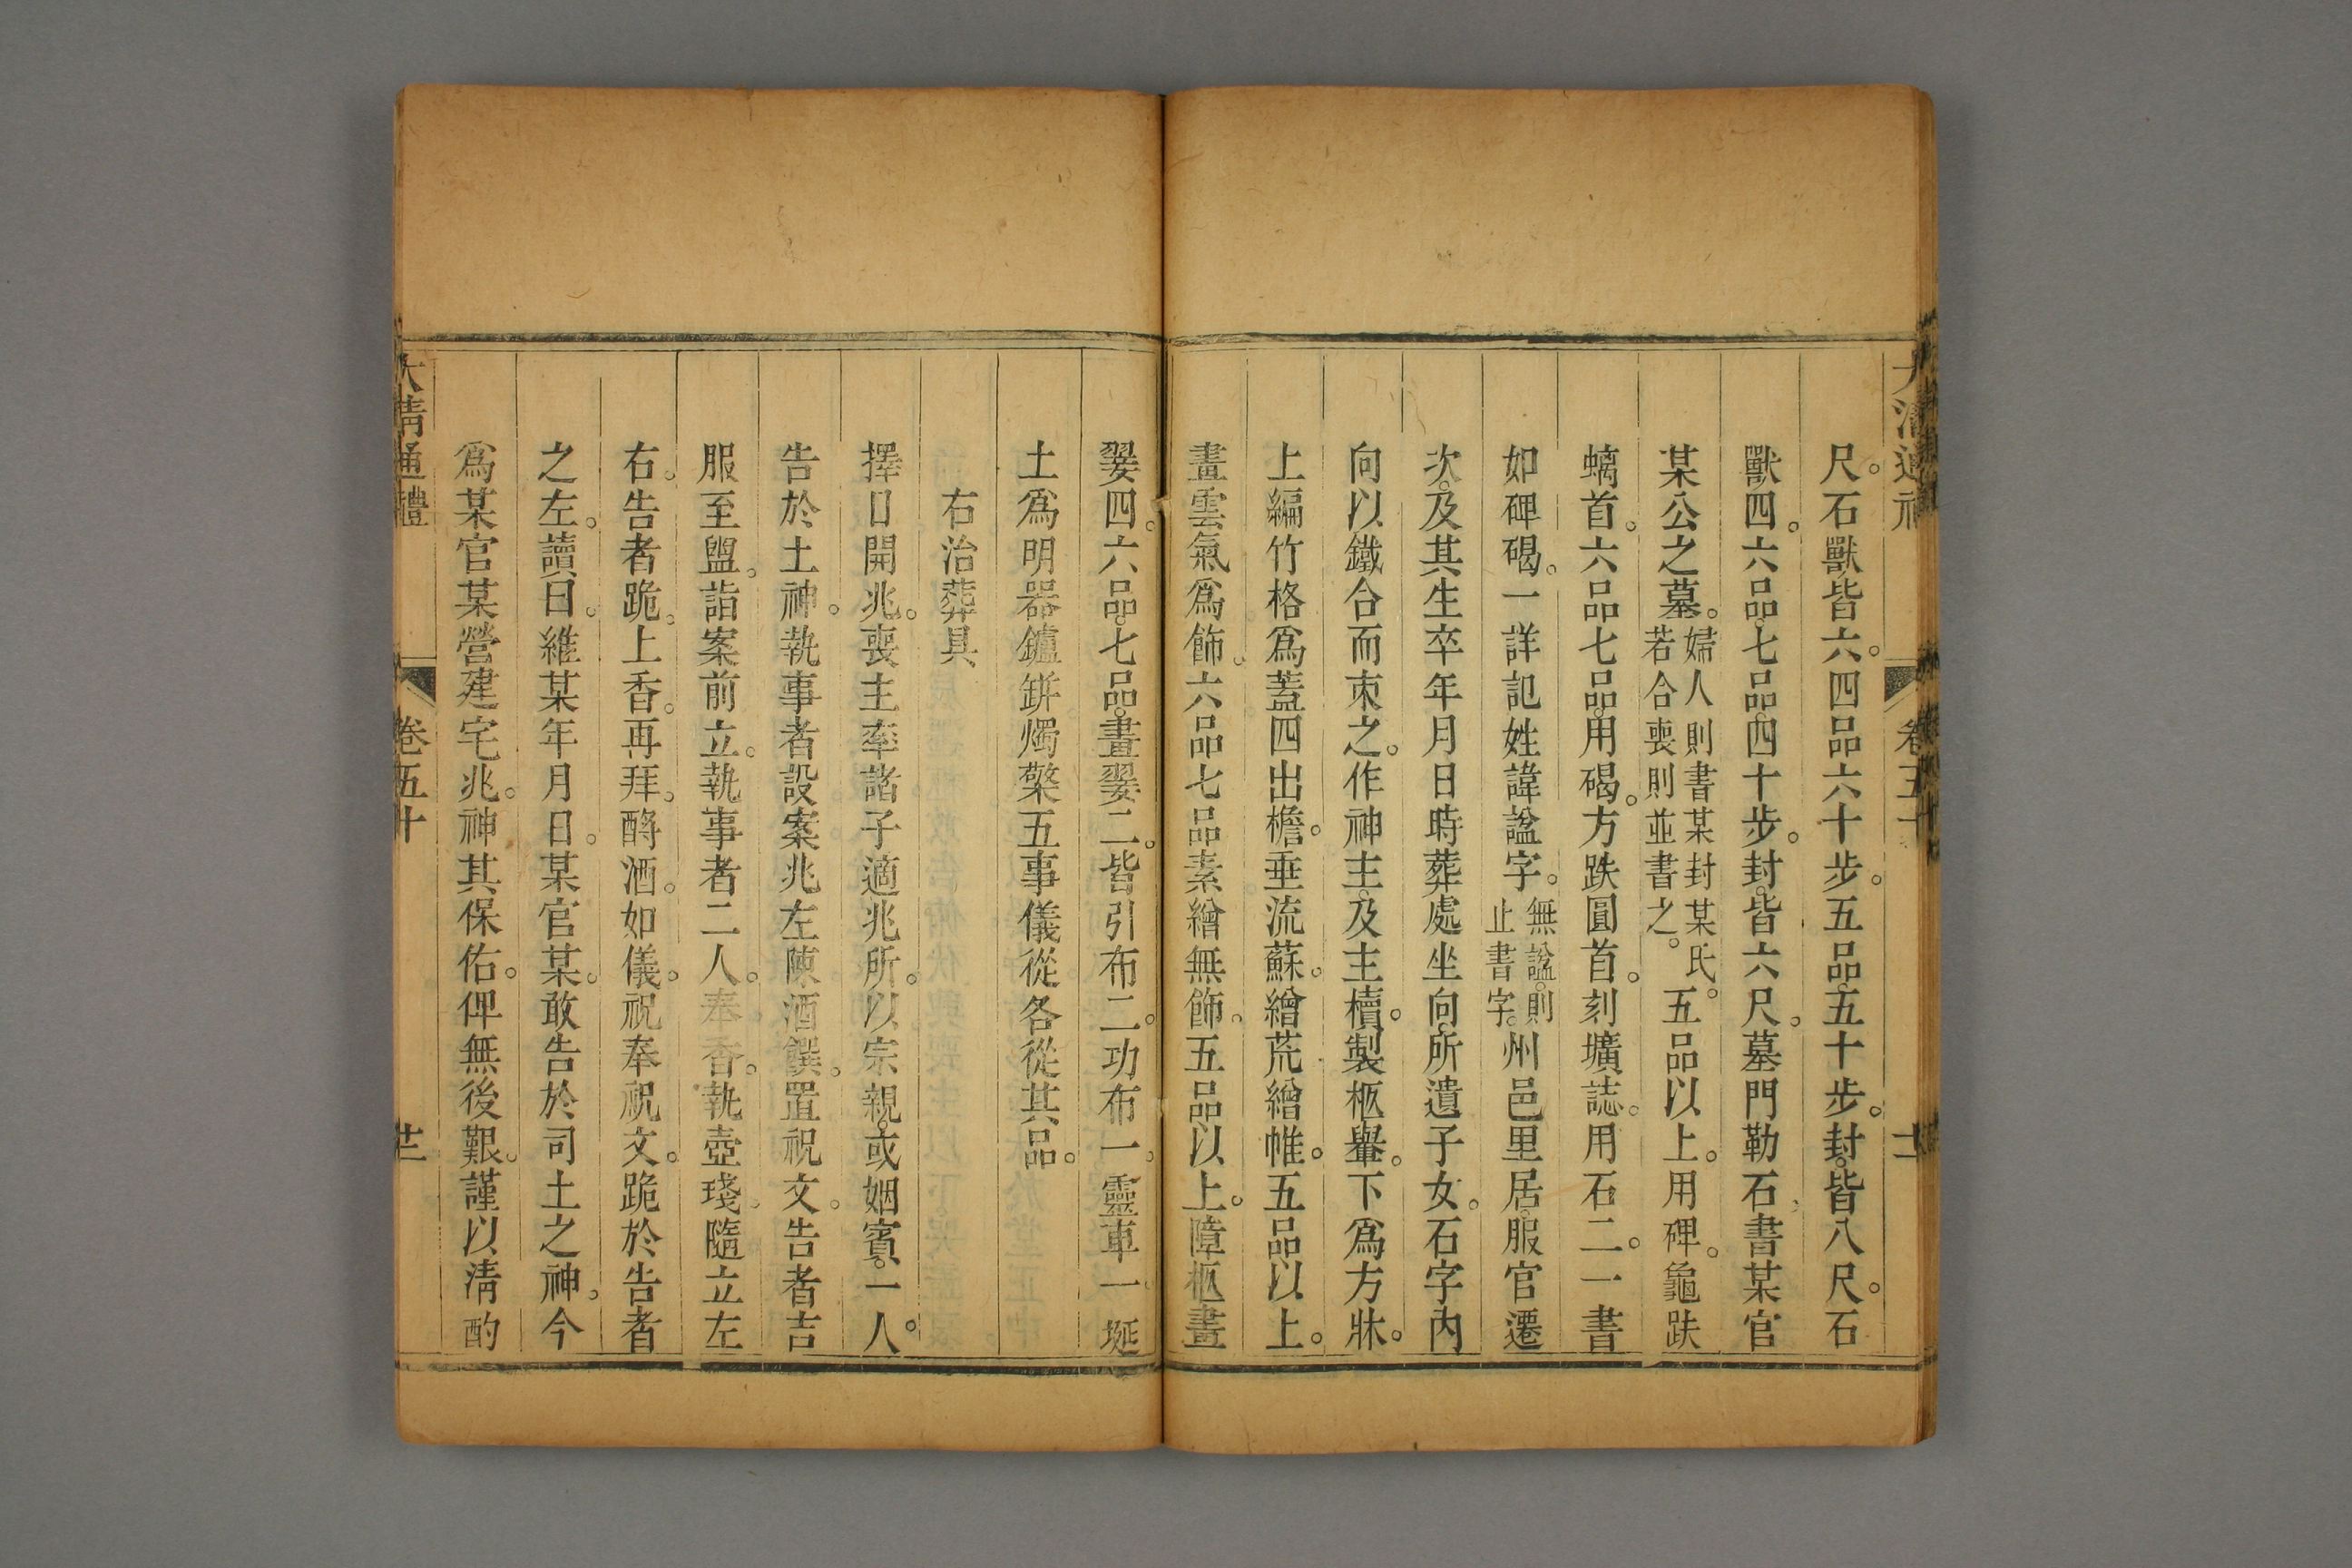 大清通禮 卷五十
尺。石獸皆六。四品六十步。五品。五十步。封。皆八尺。石
獸四。六品。七品。四十步。封。皆六尺。墓門勒石。書某官
某公之墓。婦人則書某封某氏。若合喪則並書之。五品以上。用碑。龜趺
螭首。六品七品。用碣。方趺圓首。刻壙誌。用石二。一書
如碑碣。一詳記姓諱諡字。無諡。則止書字。州邑里居。服官遷
次。及其生卒年月日時葬處坐向。所遺子女。石字內
向以鐵合而束之。作神主。及主櫝。製柩轝。下爲方牀。
上編竹格爲蓋四出檐。垂流蘇。繒荒繒帷。五品以上。
畫雲氣爲飾。六品七品素繒無飾。五品以上。障柩畫
翣四。六品。七品。畫翣二。皆引布二。功布一。靈車一。埏
土爲明器鑪缾燭檠五事儀從各從其品。
右治葬具
擇日開兆。喪主率諸子適兆所。以宗親。或姻賓。一人。
告於土神。執事者設案兆左陳酒饌。置祝文。告者吉
服至盥。詣案前立。執事者二人。奉香。執壺琖。隨立左
右。告者跪。上香。再拜。酹酒。如儀。祝奉祝文。跪於告者
之左。讀曰。維某年月日。某官某。敢告於司土之神。今
爲某官某營建宅兆。神其保佑。俾無後艱。謹以淸酌
大清通禮 卷五十